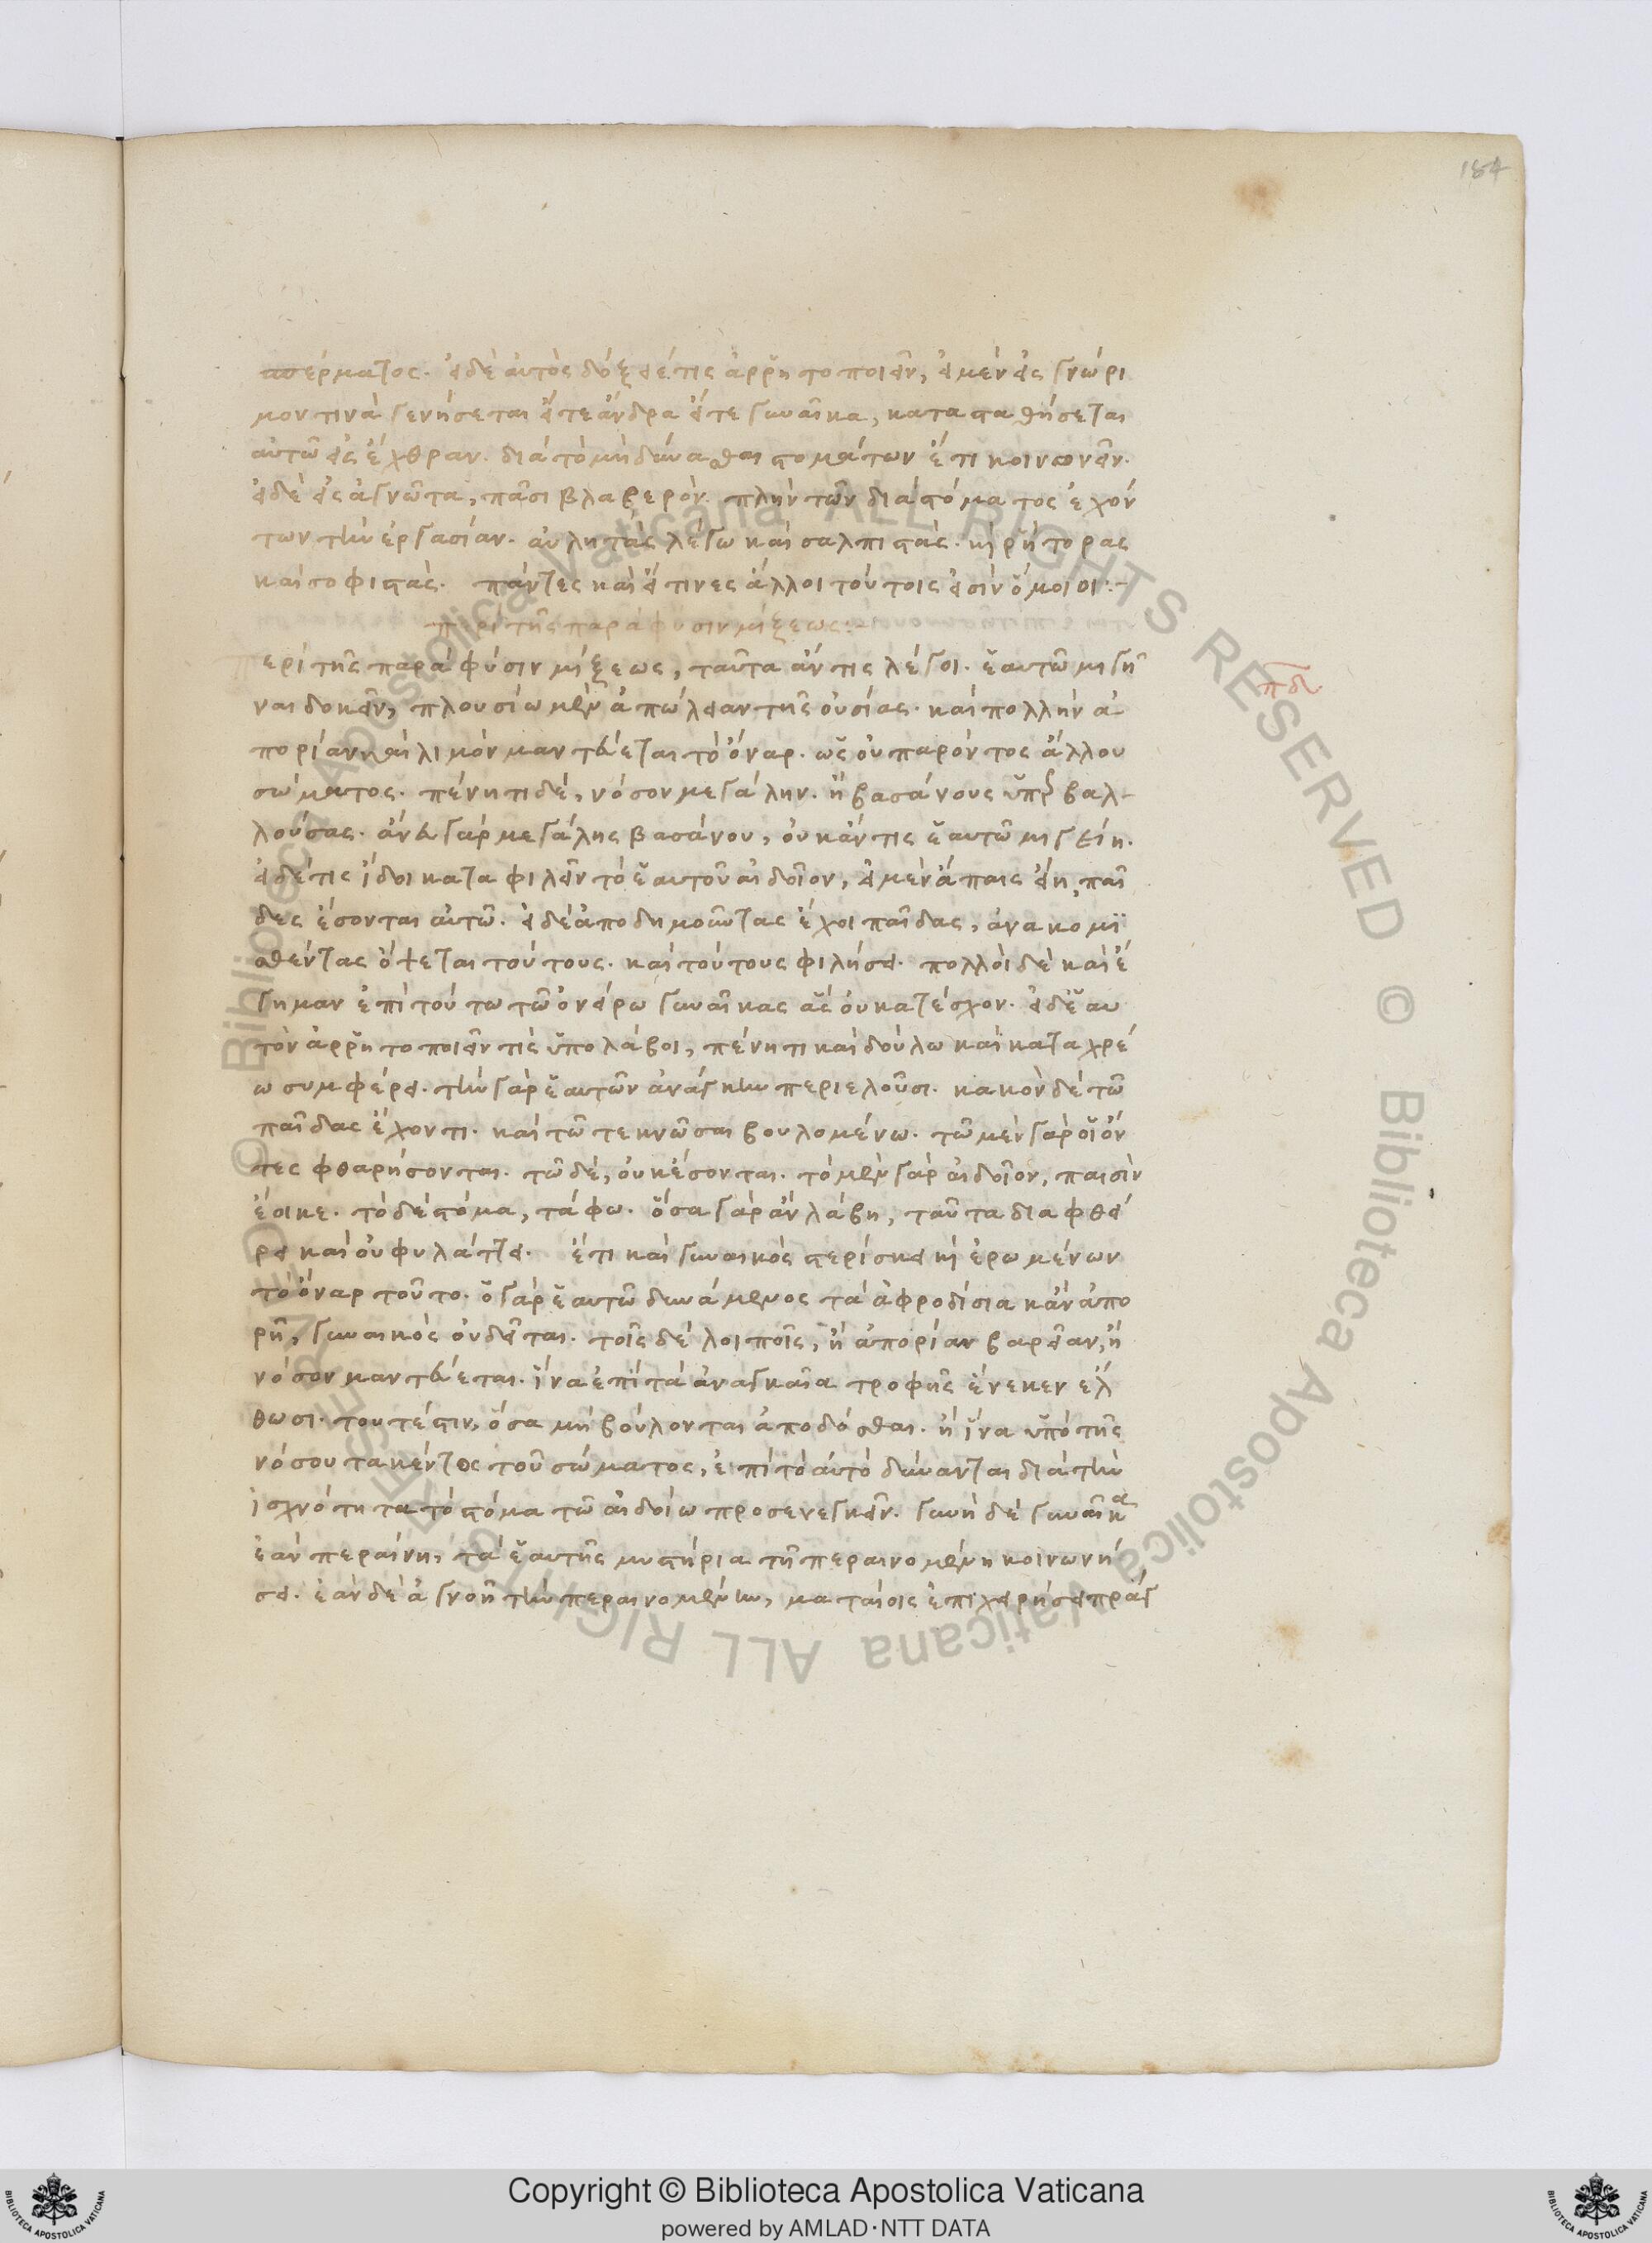 184
σπέρματος. εἰ δὲ αὐτὸς δόξειέ τις ἀρρητοποιεῖν, εἰ μὲν εἰς γνώρι
μον τινὰ γενήσεται εἴτε ἄνδρα εἴτε γυναῖκα, κατασταθήσεται
αὐτῶ εἰς ἔχθραν. διὰ τὸ μὴ δύνασθαι στομάτων ἔτι κοινωνεῖν.
εἰ δὲ εἰς ἀγνῶτα, πᾶσι βλαβερόν. πλὴν τῶν διὰ στόματος ἐχόν
των τὴν ἐργασίαν. αὐλητὰς λέγω καὶ σαλπιστὰς. καὶ ῥήτορας
καὶ σοφιστὰς. πάντες καὶ εἴ τινες ἄλλοι τούτοις εἰσὶν ὅμοιοι:-
περὶ τῆς παρὰ φύσιν μίξεως:-
Περὶ τῆς παρὰ φύσιν μίξεως, ταῦτα ἄν τις λέγοι. ἑαυτῶ μιγῆ
πδ
ναι δοκεῖν, πλουσίω μὲν ἀπώλειαν τῆς οὐσίας. καὶ πολλὴν ἀ
πορίαν καὶ λιμὸν μαντεύεται τὸ ὄναρ. ὡς οὐ παρόντος ἄλλου
σώματος. πένητι δὲ, νόσον μεγάλην. ἢ βασάνους ὑπερβαλ-
λούσας. ἄνευ γὰρ μεγάλης βασάνου, οὐκ ἄν τις ἑαυτῶ μιγείη.
εἰ δέ τις ἴδοι καταφιλεῖν τὸ ἑαυτοῦ αἰδοῖον, εἰ μὲν ἄπαις εἴη, παῖ
δες ἔσονται αὐτῶ. εἰ δὲ ἀποδημοῦντας ἔχοι παῖδας, ἀνακομι
σθέντας ὄψεται τούτους. καὶ τούτους φιλήσει. πολλοὶ δὲ καὶ ἔ
γημαν ἐπὶ τούτω τῶ ὀνείρω γυναῖκας ἃς οὐ κατέσχον. εἰ δὲ ἑαυ
τὸν ἀρρητοποιεῖν τὶς ὑπολάβοι, πένητι καὶ δούλω καὶ καταχρέ
ω συμφέρει. τὴν γὰρ ἑαυτῶν ἀνάγκην περιελοῦσι. κακὸν δὲ τῶ
παῖδας ἔχοντι. καὶ τῶ τεκνῶσαι βουλομένω. τῶ μὲν γὰρ οἱ ὄν
τες φθαρήσονται. τῶ δὲ, οὐκ ἔσονται. τὸ μὲν γὰρ αἰδοῖον, παισὶν
ἔοικε. τὸ δὲ στόμα, τάφω. ὅσα γὰρ ἂν λάβη, ταῦτα διαφθεί
ρει καὶ οὐ φυλάττει. ἔτι καὶ γυναικὸς στερίσκει καὶ ἐρωμένων
τὸ ὄναρ τοῦτο. ὁ γὰρ ἑαυτῶ δυνάμενος τὰ ἀφροδίσια κἂν ἀπο
ρῆ, γυναικὸς οὐ δεῖται. τοῖς δὲ λοιποῖς, ἢ ἀπορίαν βαρεῖαν, ἢ
νόσον μαντεύεται. ἵνα ἐπὶ τὰ ἀναγκαῖα τροφῆς ἕνεκεν ἔλ
θωσι. τουτέστιν, ὅσα μὴ βούλονται ἀποδόσθαι. ἢ ἵνα ὑπὸ τῆς
νόσου τακέντος τοῦ σώματος, ἐπὶ τὸ αὐτὸ δύνανται διὰ τὴν
ἰσχνότητα τὸ στόμα τῶ αἰδοίω προσενεγκεῖν. γυνὴ δὲ γυναῖκα
ἐὰν περαίνη, τὰ ἑαυτῆς μυστήρια τῆ περαινομένη κοινωνή
σει. ἐὰν δὲ ἀγνοῆ τὴν περαινομένην, ματαίοις ἐπιχειρήσει πράγ
Copyright © Biblioteca Apostolica Vaticana
powered by AMLAD·NTT DATA